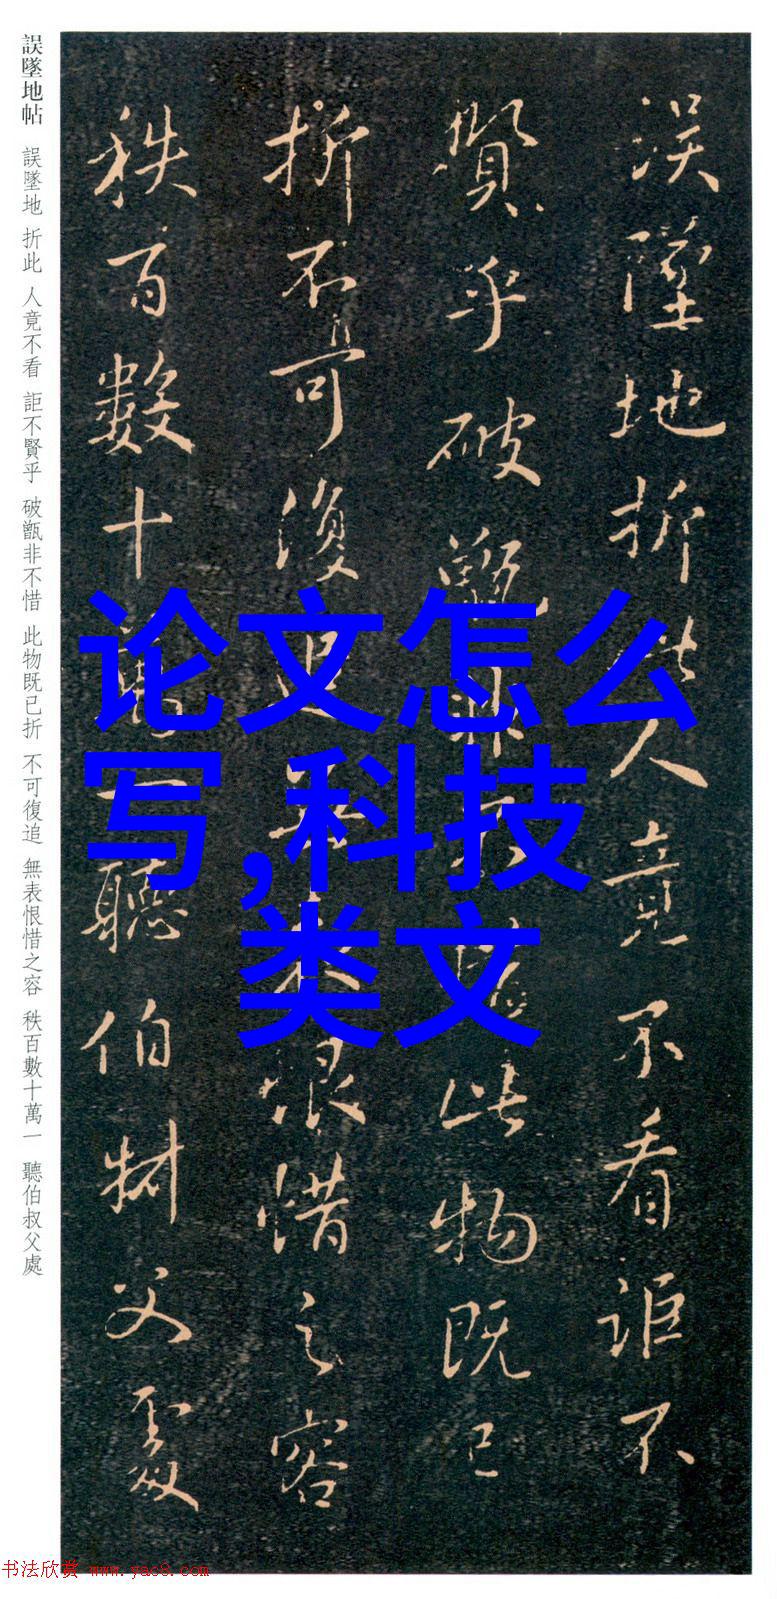 誤墜地帖 誤墜地 折此 人竟不看 詎不賢乎 破甑非不惜 此物既已折 不可復追 無表恨惜之容 秩百數十萬一 聽伯叔父處
误墜地折此人竟不看詎不
賢乎破甑非不惜此物既已
折不可復追無表恨惜之容
秩百數十萬一聽伯叔父處
论文怎么
写,科技
类文
书法欣赏 www.yac8.com